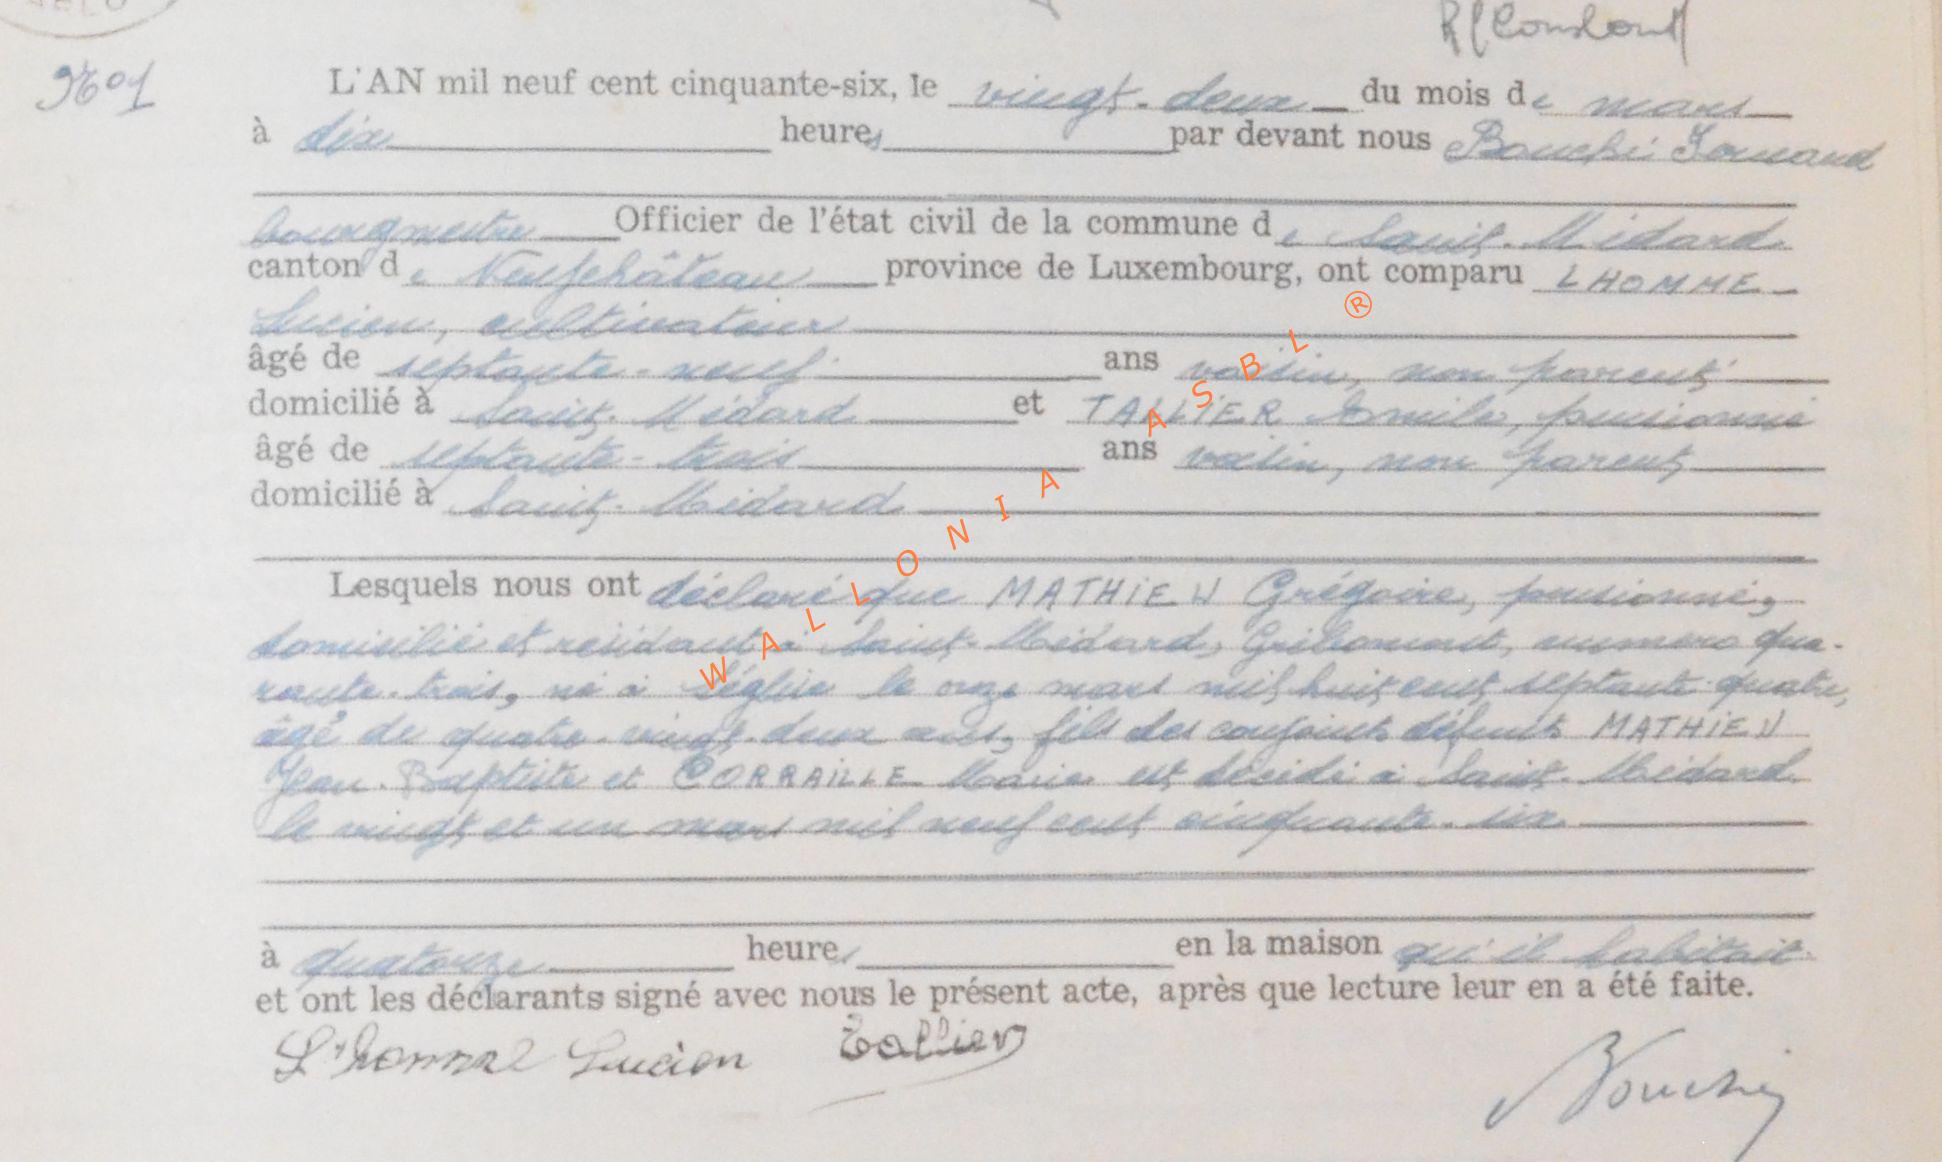 9601
L'AN mil neuf cent cinquante-six, le vingt-deux du mois de mars
à dix heures par devant nous Bouché
bourgmestre Officier de l'état civil de la commune de Saint-Médard
canton de Neufchâteau province de Luxembourg, ont comparu LHOMME
Lucien, cultivateur
âgé de septante-neuf ans voisin, non parent
domicilié à Saint-Médard et TALLIER Emile, pensionné
âgé de septante-trois ans voisin, non parent
domicilié à Saint-Médard
Lesquels nous ont déclaré que MATHIEU Grégoire, pensionné,
domicilié et résidant à Saint-Médard, Gribomont, numéro qua-
rante-trois, né à Léglise le onze mars mil huit cent septante-quatre,
âgé de quatre-vingt-deux ans, fils des conjoints défunts MATHIEU
Jean-Baptiste et CORRAILLE Marie est décédé à Saint-Médard
le vingt et un mars mil neuf cent cinquante-six
à quatorze heures en la maison qu'il habitait
et ont les déclarants signé avec nous le présent acte, après que lecture leur en a été faite.
L'homme Lucien Tallier Bouché
WALLONIA ASBL ®